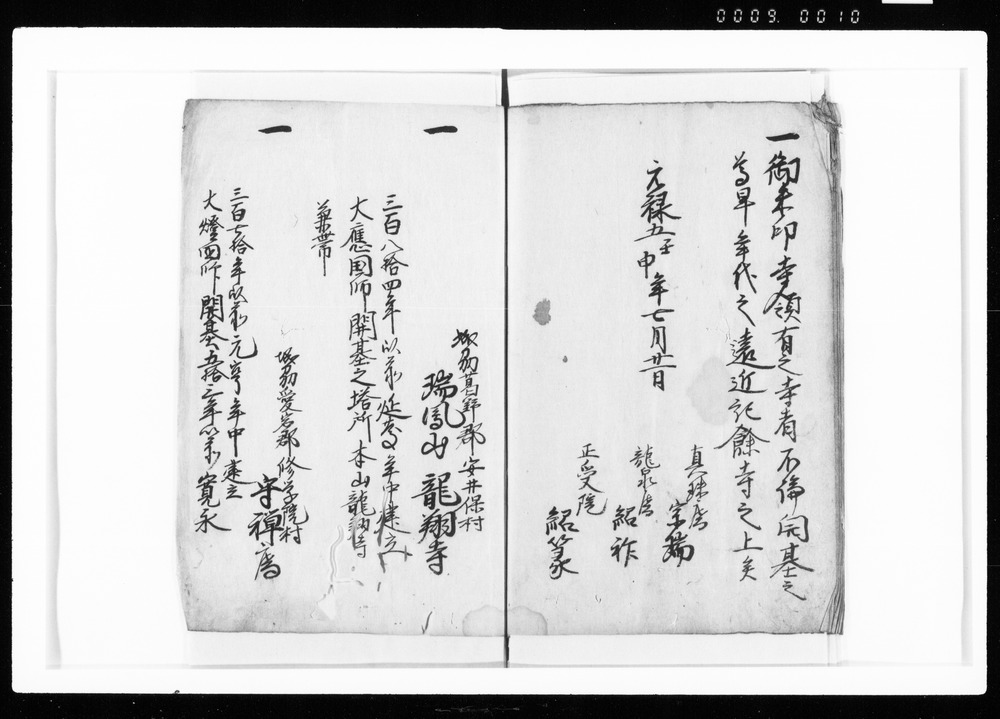 0009 0010
一 御朱印寺領有之寺者不倫開基之
尊卑年代之遠近記餘寺之上矣
元禄五壬申年七月廿一日
真珠庵
宗瑞
龍泉庵
紹祚
正受院
紹篆
一 城州葛野郡安井保村
瑞鳳山 龍翔寺
三百八拾四年以前延慶年中建立
大應国師開基之塔所本山龍翔寺
兼帯
一 城州愛宕郡修学院村
守禅庵
三百七拾年以前元亨年中建立
大燈国師開基五拾三年以前寛永